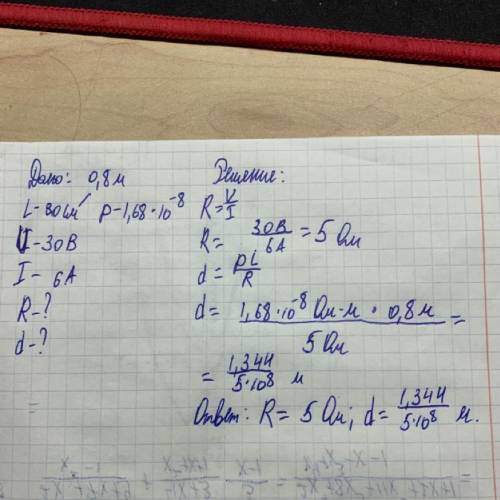 Дано: 0,8 м
L - 80 см p - 1,68·10⁻⁸
U - 30 В
I - 6 А
R - ?
d - ?
=
Решение:
R = U/I
R = 30 В/6 А = 5 Ом
d = pL/R
d = 1,68·10⁻⁸ Ом-м · 0,8 м / 5 Ом =
= 1,344/5·10⁸ м
Ответ: R = 5 Ом; d = 1,344/5·10⁸ м.